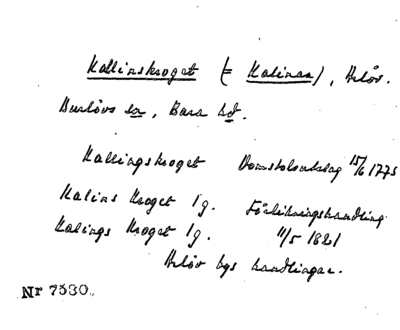 Kallinskroget (= Kalinaa), Arlöv.
Burlövs sn, Bara hd.
Kallingskroget Domstolsutslag 15/6 1775
Kalins Kroget 1 g. Förlikningshandling
Kalings Kroget 1 g. 11/5 1821
Arlöv bys handlingar.
Nr 7530.